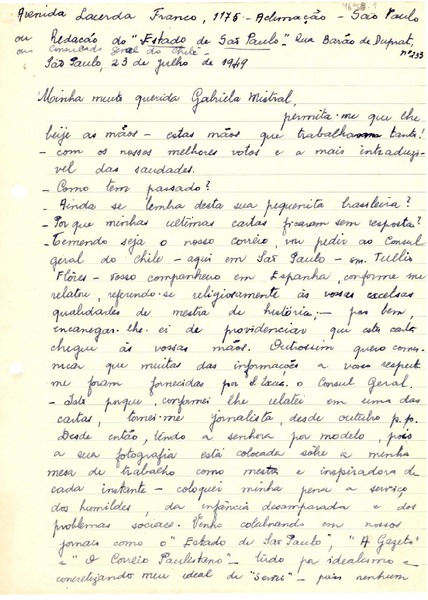 Avenida Lacerda Franco, 1175 - Aclimação - São Paulo
ou Redação do "Estado de São Paulo" - Rua Barão de Duprat, nº 233
ou Consulado Geral do Chile -
São Paulo, 23 de julho de 1949
Minha muito querida Gabriela Mistral,
permita-me que lhe
beije as mãos - estas mãos que trabalham tanto!
- com os nossos melhores votos e a mais intraduzi-
vel das saudades.
- Como tem passado?
- Ainda se lembra desta sua pequenita brasileira?
- Por que minhas ultimas cartas ficaram sem resposta?
- Temendo seja o nosso correio, vou pedir ao Consul
geral do Chile - aqui em São Paulo - sr. Tullis
Flores - vosso companheiro em Espanha, conforme me
relatou, referindo-se religiosamente às vossas excelsas
qualidades de mestra de história; - pois bem,
encarregar-lhe-ei de providenciar que esta carta
chegue às vossas mãos. Outrossim quero comu-
nicar que muitas das informações a vosso respeito
me foram fornecidas por S. Excia. o Consul Geral.
- Isto porque, conformei lhe relatei em uma das
cartas, tornei-me jornalista, desde outubro p.p.
Desde então, tendo a senhora por modelo, pois
a sua fotografia está colocada sôbre a minha
mesa de trabalho como mestra e inspiradora de
cada instante - coloquei minha pena a serviço
dos humildes, da infância desamparada e dos
problemas sociaes. Venho colaborando em nossos
jornais como o "Estado de São Paulo", "A Gazeta"
e "O Correio Paulistano" - tudo por idealismo e
concretizando meu ideal de "Servir" - pois nenhum